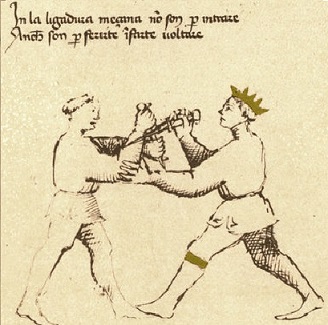 In la ligadura meçana nō son ꝑ intrare
Anch̄ son ꝑ ferirte īfarte uoltare